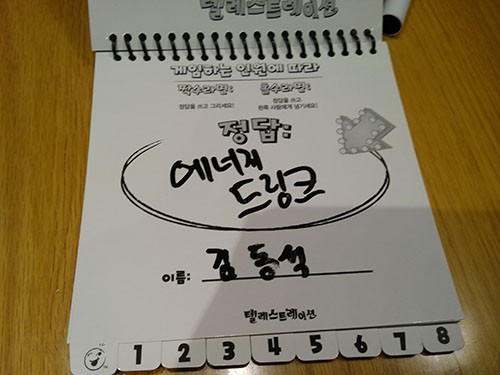 텔레스트레이션
게임하는 인원에 따라
짝수라면: 홀수라면:
정답을 쓰고 그리세요! 정답을 쓰고
왼쪽 사람에게 넘기세요!
정답:
에너지
드링크
이름: 김동석
텔레스트레이션
1 2 3 4 5 6 7 8